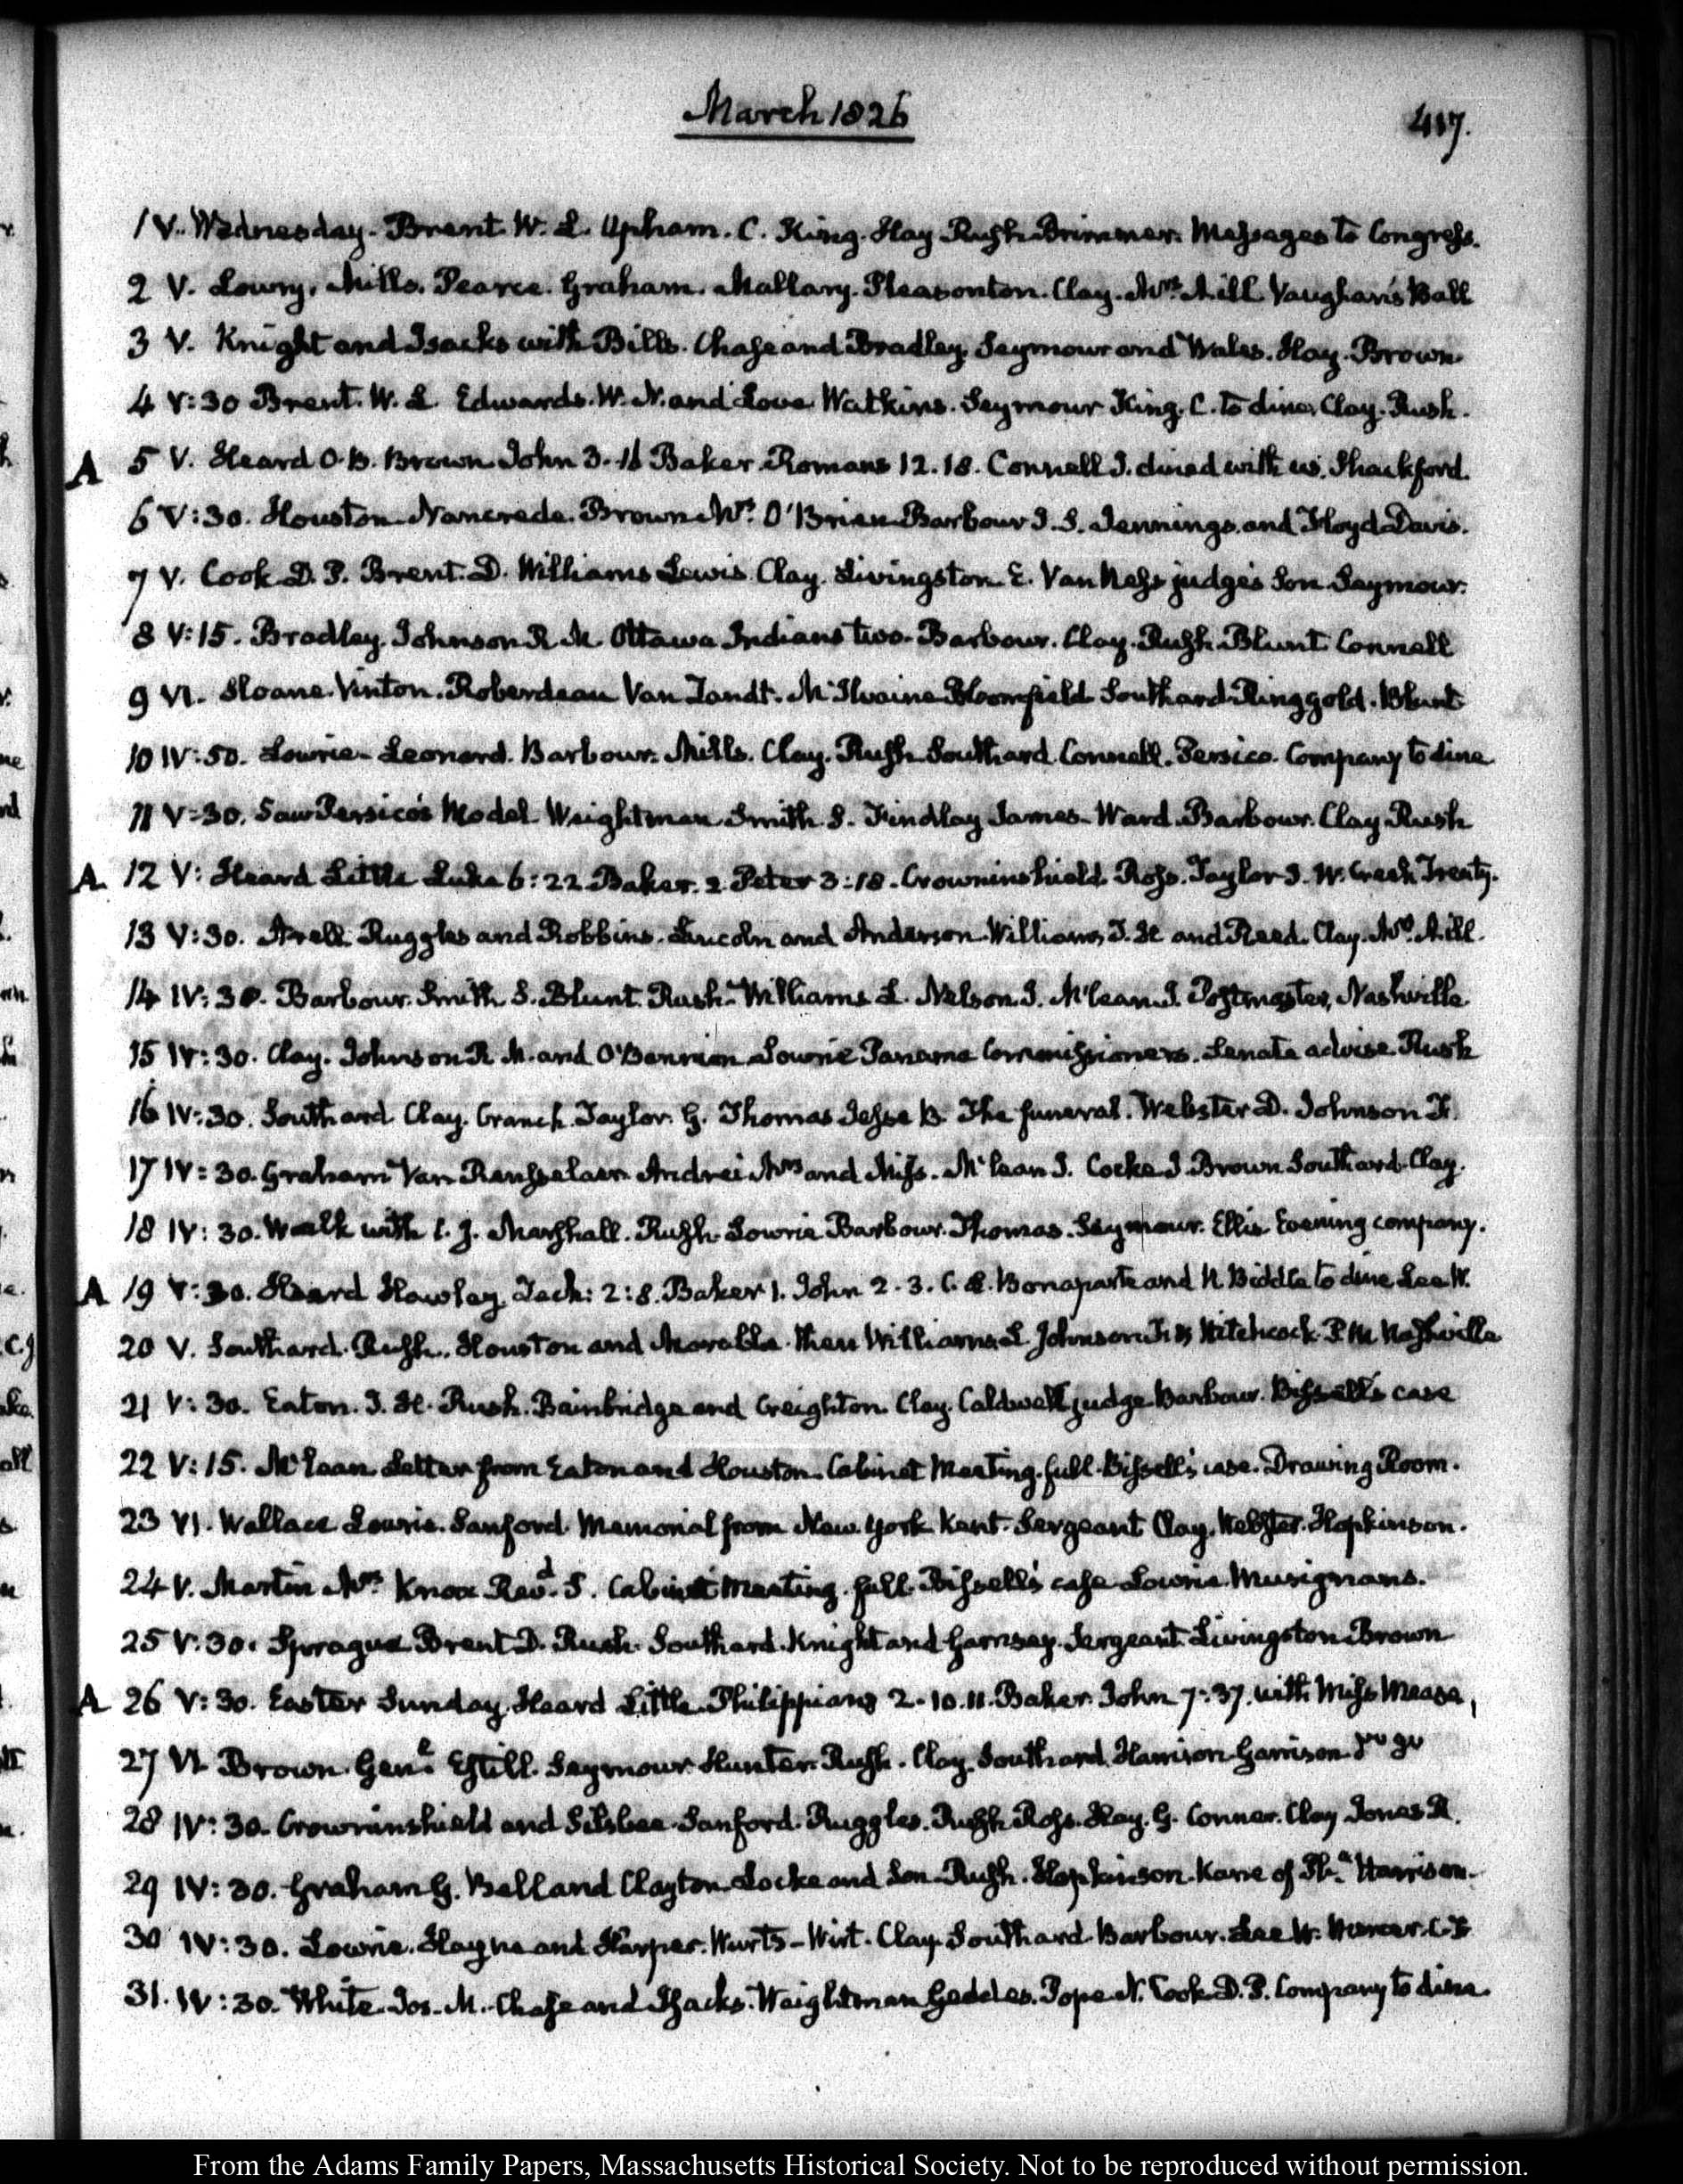 March 1826
417.
1 V. Wednesday. Brent. W. L. Upham. C. King. Hay. Rush. Brimmer. Messages to Congress.
2 V. Lowry. Mills. Pearce. Graham. Mallary. Pleasonton. Clay. Mrs. A. ill. Vaughan's Ball
3 V. Knight and Isacks with Bills. Chase and Bradley. Seymour and Wales. Hay. Brown
4 V:30 Brent. W. L. Edwards. W. N. and Love. Watkins. Seymour. King. C. to dine. Clay. Rush.
A 5 V. Heard O. B. Brown John 3. 16 Baker. Romans 12. 18. Connell J. dined with us. Shackford.
6 V:30. Houston. Nancrede. Brown. Mr. O'Brien. Barbour J. S. Jennings. and Floyd. Davis.
7 V. Cook D. P. Brent. D. Williams Lewis. Clay. Livingston E. Van Ness judge's Son. Seymour.
8 V:15. Bradley. Johnson R. M. Ottawa Indians two. Barbour. Clay. Rush. Blunt. Connell
9 VI. Sloane. Vinton. Roberdeau Van Zandt. McIlvaine Bloomfield Southard. Ringgold. Blunt
10 IV:50. Lowrie. Leonard. Barbour. Mills. Clay. Rush. Southard. Connell. Persico. Company to dine
11 V:30. Saw Persico's Model. Weightman. Smith. S. Findlay James. Ward. Barbour. Clay Rush
A. 12 V: Heard Little Luke 6:22. Baker. 2. Peter 3:18. Crowninshield. Ross. Taylor J. W. Creek Treaty.
13 V:30. Ruggles and Robbins. Lincoln and Anderson. Williams, T. H. and Reed. Clay. A. ill.
14 IV:30. Barbour. Smith. S. Blunt. Rush. Williams L. Nelson. J. McLean. J. Postmaster, Nashville.
15 IV:30. Clay. Johnson R. M. and O'Bannion. Lowrie Panama Commissioners. Senate advise. Rush
16 IV:30. Southard. Clay. Cranch. Taylor. G. Thomas Jesse B. The funeral. Webster D. Johnson F.
17 IV:30. Graham Van Rensselaer. Andrei Mrs and Miss. McLean J. Cocke J. Brown. Southard. Clay.
18 IV:30. Walk with C. J. Marshall. Rush. Lowrie. Barbour. Thomas. Seymour. Ellis. Evening company.
A 19 V:30. Heard Hawley. Zech: 2:8. Baker 1. John 2. 3. C. L. Bonaparte and N. Biddle to dine. Lee W.
20 V. Southard. Rush. Houston and Marable. then Williams L. Johnson F. Hitchcock. P. M. Nashville
21 V:30. Eaton. J. H. Rush. Bainbridge and Creighton. Clay. Caldwell judge. Barbour. Bissell's case
22 V:15. McLean. Letter from Eaton and Houston. Cabinet Meeting. full. Bissell's case. Drawing Room.
23 VI. Wallace Lowrie. Sanford. Memorial from New York Kent. Sergeant. Clay. Webster. Hopkinson.
24 V. Martin Mrs. Knox Revd. S. Cabinet Meeting. full. Bissell's case. Lowrie. Musignano.
25 V:30. Sprague. Brent D. Rush. Southard. Knight and Garnsey. Sergeant. Livingston. Brown
A 26 V:30. Easter Sunday. Heard Little. Philippians 2. 10. 11. Baker. John 7:37. with Miss Mease,
27 VI. Brown. Genl. Estill. Seymour. Hunter. Rush. Clay. Southard. Harrison. Garrison
28 IV:30. Crowninshield and Silsbee. Sanford. Ruggles. Rush. Ross. Hay. G. Conner. Clay. Jones R.
29 IV:30. Graham G. Bell and Clayton. Locke and Son. Rush. Hopkinson. Kane of Pha. Harrison.
30 IV:30. Lowrie. Hayne and Harper. Wurts. Wirt. Clay. Southard. Barbour. Lee W. Mercer. C. F.
31. IV:30. White. Jos. M. Chase and Isacks. Weightman. Geddes. Pope N. Cook D. P. Company to dine.
From the Adams Family Papers, Massachusetts Historical Society. Not to be reproduced without permission.